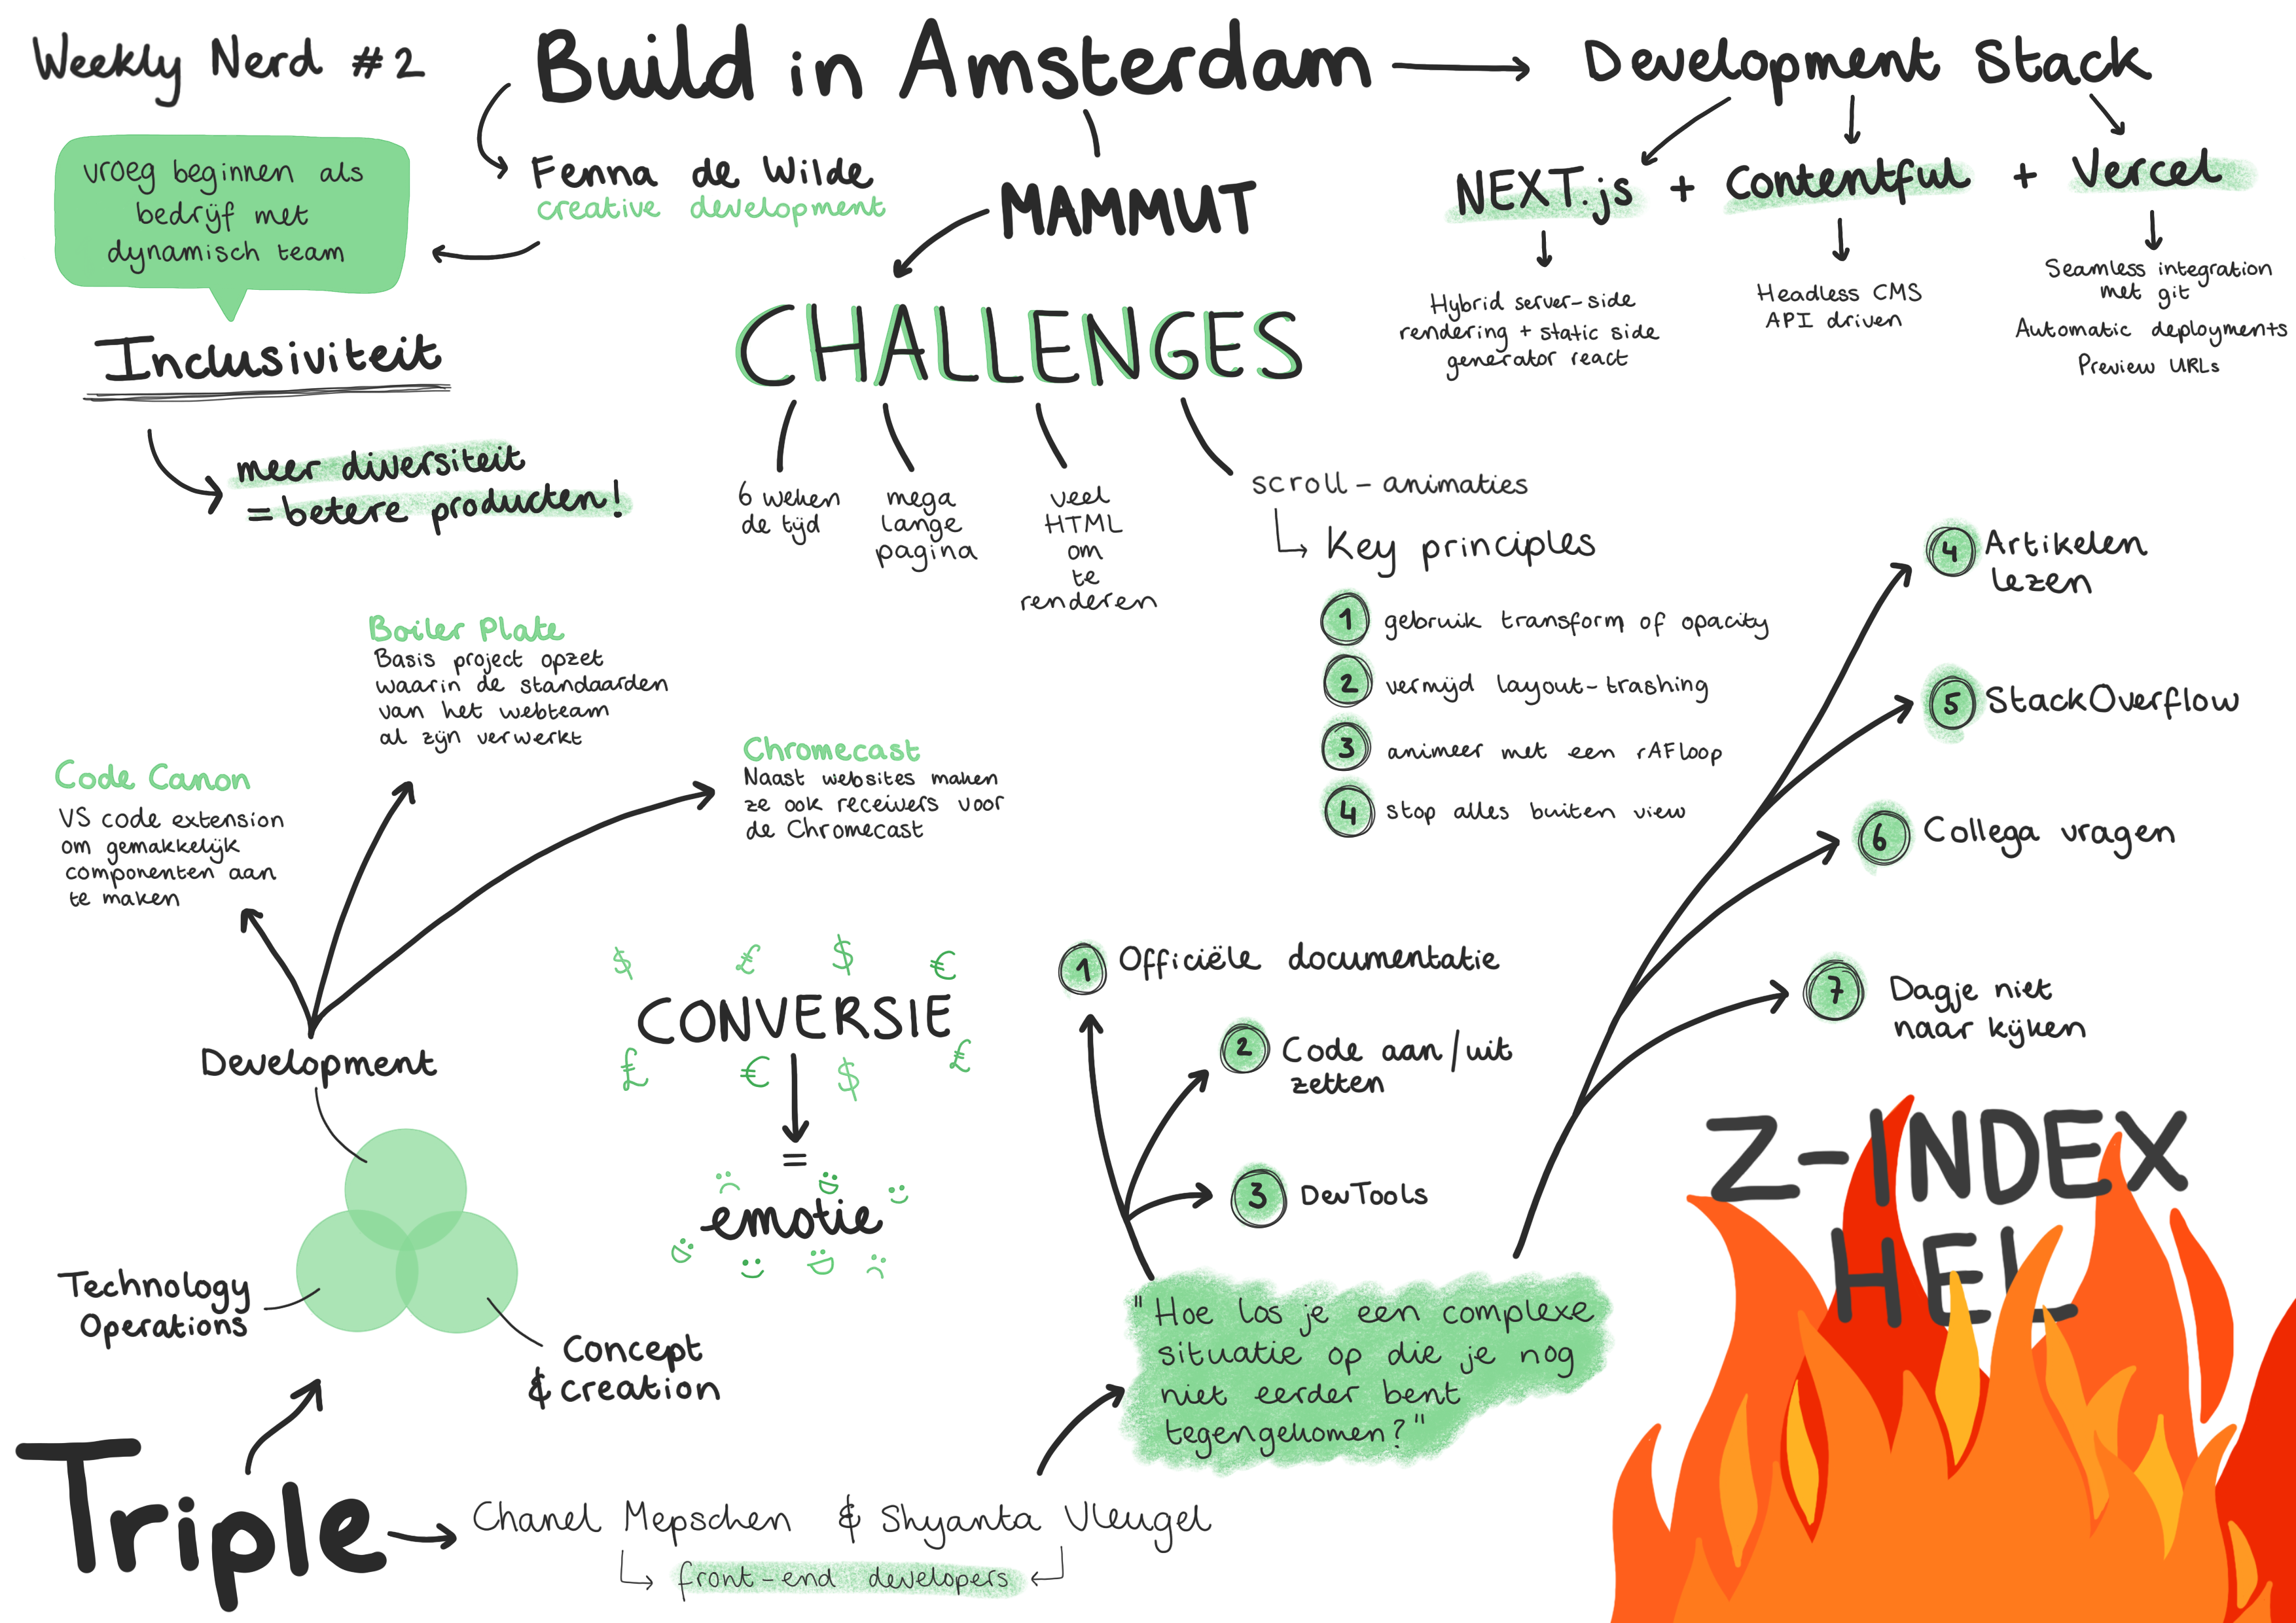 Weekly Nerd #2
Build in Amsterdam
Development Stack
Fenna de Wilde
creative development
vroeg beginnen als
bedrijf met
dynamisch team
Inclusiviteit
meer diversiteit
= betere producten!
MAMMUT
CHALLENGES
6 weken
de tijd
mega
lange
pagina
veel
HTML
om
te
renderen
scroll-animaties
Key principles
1 gebruik transform of opacity
2 vermijd layout-trashing
3 animeer met een rAFloop
4 stop alles buiten view
NEXT.js + Contentful + Vercel
Hybrid server-side
rendering + static side
generator react
Headless CMS
API driven
Seamless integration
met git
Automatic deployments
Preview URLs
Boiler Plate
Basis project opzet
waarin de standaarden
van het webteam
al zijn verwerkt
Code Canon
VS code extension
om gemakkelijk
componenten aan
te maken
Chromecast
Naast websites maken
ze ook receivers voor
de Chromecast
Development
Technology
Operations
Concept
& creation
$ £ $ €
CONVERSIE
£ € $ £
=
emotie
1 Officiële documentatie
2 Code aan/uit
zetten
3 DevTools
4 Artikelen
lezen
5 StackOverflow
6 Collega vragen
7 Dagje niet
naar kijken
"Hoe los je een complexe
situatie op die je nog
niet eerder bent
tegengekomen?"
Z-INDEX
HEL
Triple
Chanel Mepschen & Shyanta Vleugel
front-end developers